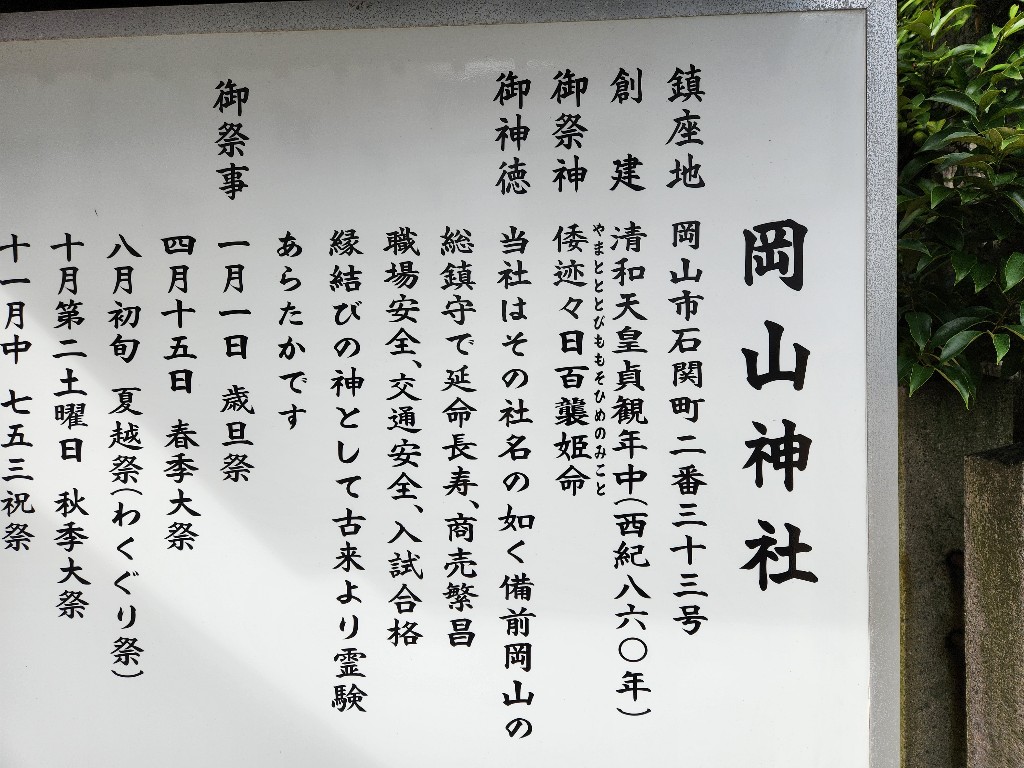 岡山神社
鎮座地 岡山市石関町二番三十三号
創 建 清和天皇貞観年中(西紀八六〇年)
やまとととびももそひめのみこと
御祭神 倭迹々日百襲姫命
御神徳 当社はその社名の如く備前岡山の
総鎮守で延命長寿、商売繁昌
職場安全、交通安全、入試合格
縁結びの神として古来より霊験
あらたかです
御祭事 一月一日 歳旦祭
四月十五日 春季大祭
八月初旬 夏越祭(わくぐり祭)
十月第二土曜日 秋季大祭
十一月中 七五三祝祭